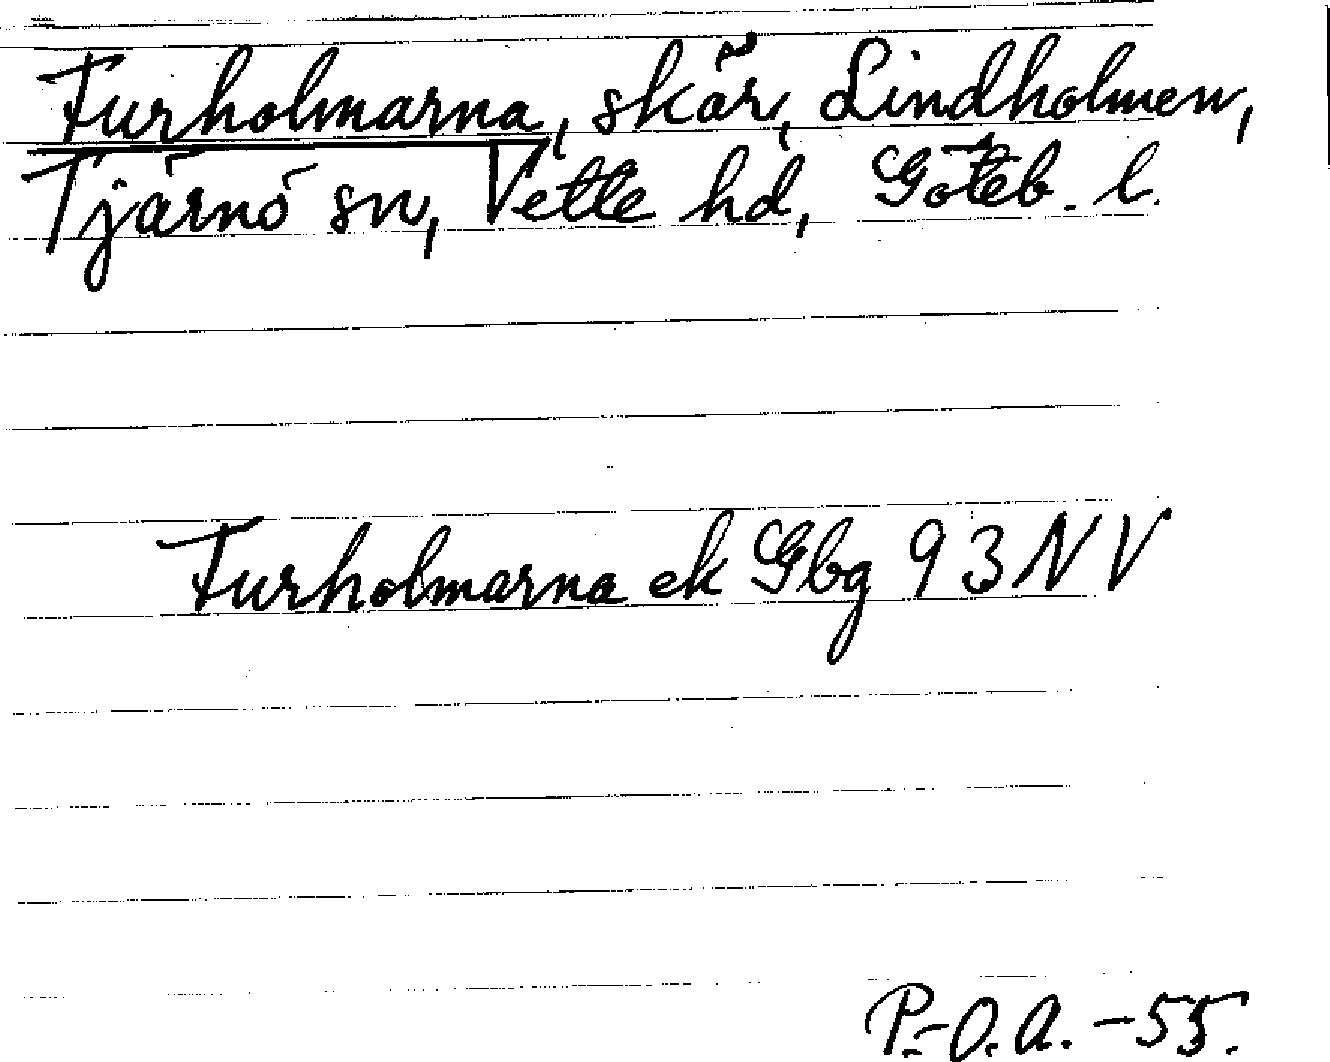 Furholmarna, skär, Lindholmen,
Tjärnö sn, Vette hd, Göteb. l.
Furholmarna ek Gbg 93 NV
P.-O.A. -55.